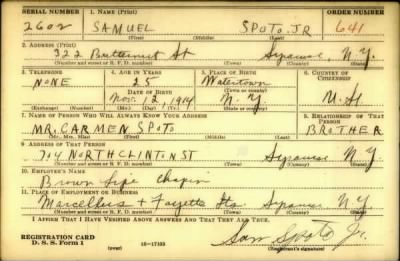 SERIAL NUMBER 1. NAME (Print) ORDER NUMBER
2602 SAMUEL SPOTO, JR 641
(First) (Middle) (Last)
2. ADDRESS (Print)
322 Butternut St Syracuse, N.Y.
(Number and street or R. F. D. number) (Town) (County) (State)
3. TELEPHONE 4. AGE IN YEARS 5. PLACE OF BIRTH 6. COUNTRY OF CITIZENSHIP
NONE 25 Watertown
DATE OF BIRTH (Town or county)
Nov. 12, 1914 N.Y. U.S.
(Exchange) (Number) (Mo.) (Day) (Yr.) (State or country)
7. NAME OF PERSON WHO WILL ALWAYS KNOW YOUR ADDRESS 8. RELATIONSHIP OF THAT PERSON
MR. CARMEN SPOTO BROTHER
(Mr., Mrs., Miss) (First) (Middle) (Last)
9. ADDRESS OF THAT PERSON
NORTH CLINTON ST Syracuse N.Y.
(Number and street or R. F. D. number) (Town) (County) (State)
10. EMPLOYER'S NAME
Brown Lipe Chapin
11. PLACE OF EMPLOYMENT OR BUSINESS
Marcellus + Fayette Sts. Syracuse N.Y.
(Number and street or R. F. D. number) (Town) (County) (State)
I AFFIRM THAT I HAVE VERIFIED ABOVE ANSWERS AND THAT THEY ARE TRUE.
REGISTRATION CARD
D. S. S. Form 1 (over) 16—17105 Sam Spoto Jr.
(Registrant's signature)